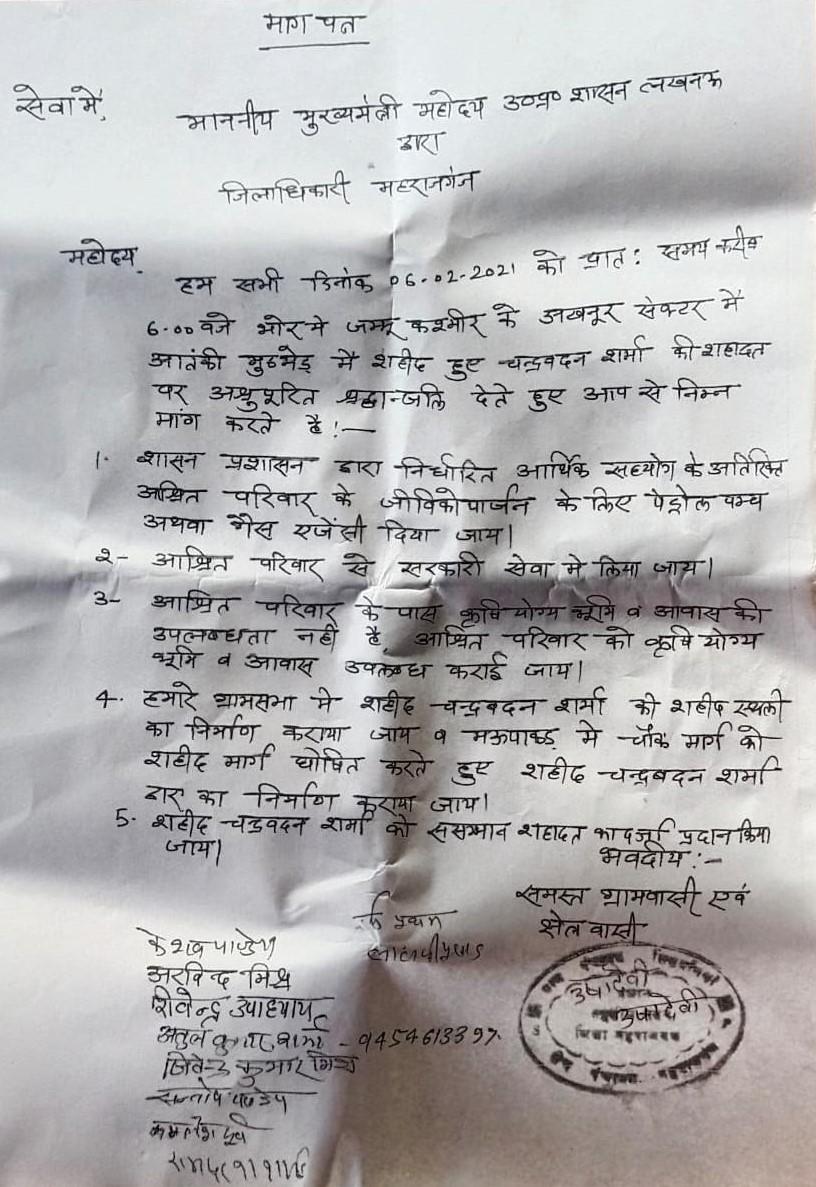 माग पत्र
सेवा में,
माननीय मुख्यमंत्री महोदय उ०प्र० शासन लखनऊ
द्वारा
जिलाधिकारी महराजगंज
महोदय,
हम सभी दिनांक 06.02.2021 को प्रात: समय करीब
6.00 वजे भोर मे जम्मू कश्मीर के अखनूर सेक्टर में
आतंकी मुठभेड़ में शहीद हुए चन्द्रवदन शर्मा की शहादत
पर अश्रुपूरित श्रद्धान्जलि देते हुए आप से निम्न
मांग करते है!—
1. शासन प्रशासन द्वारा निर्धारित आर्थिक सहयोग के अतिरिक्त
अश्रित परिवार के जीविकोपार्जन के लिए पेट्रोल पम्प
अथवा गैस एजेंसी दिया जाय।
2- आश्रित परिवार से सरकारी सेवा मे लिया जाय।
3- आश्रित परिवार के पास कृषि योग्य भूमि व आवास की
उपलब्धता नही है, आश्रित परिवार को कृषि योग्य
भूमि व आवास उपलब्ध कराई जाय।
4. हमारे ग्रामसभा मे शहीद चन्द्रवदन शर्मा की शहीद स्थली
का निर्माण कराया जाय व मऊपाकड़ मे चौक मार्ग को
शहीद मार्ग घोषित करते हुए शहीद चन्द्रवदन शर्मा
द्वार का निर्माण कराया जाय।
5. शहीद चन्द्रवदन शर्मा को ससम्मान शहादत का दर्जा प्रदान किया
जाय।
भवदीय:-
समस्त ग्रामवासी एवं
क्षेत्र वासी
केशव पाण्डेय
अरविन्द मिश्र
शिवेन्द्र उपाध्याय
अतुल कुमार शर्मा - 9454613397
जितेन्द्र कुमार मिश्र
सन्तोष पाण्डेय
उषादेवी
उषादेवी